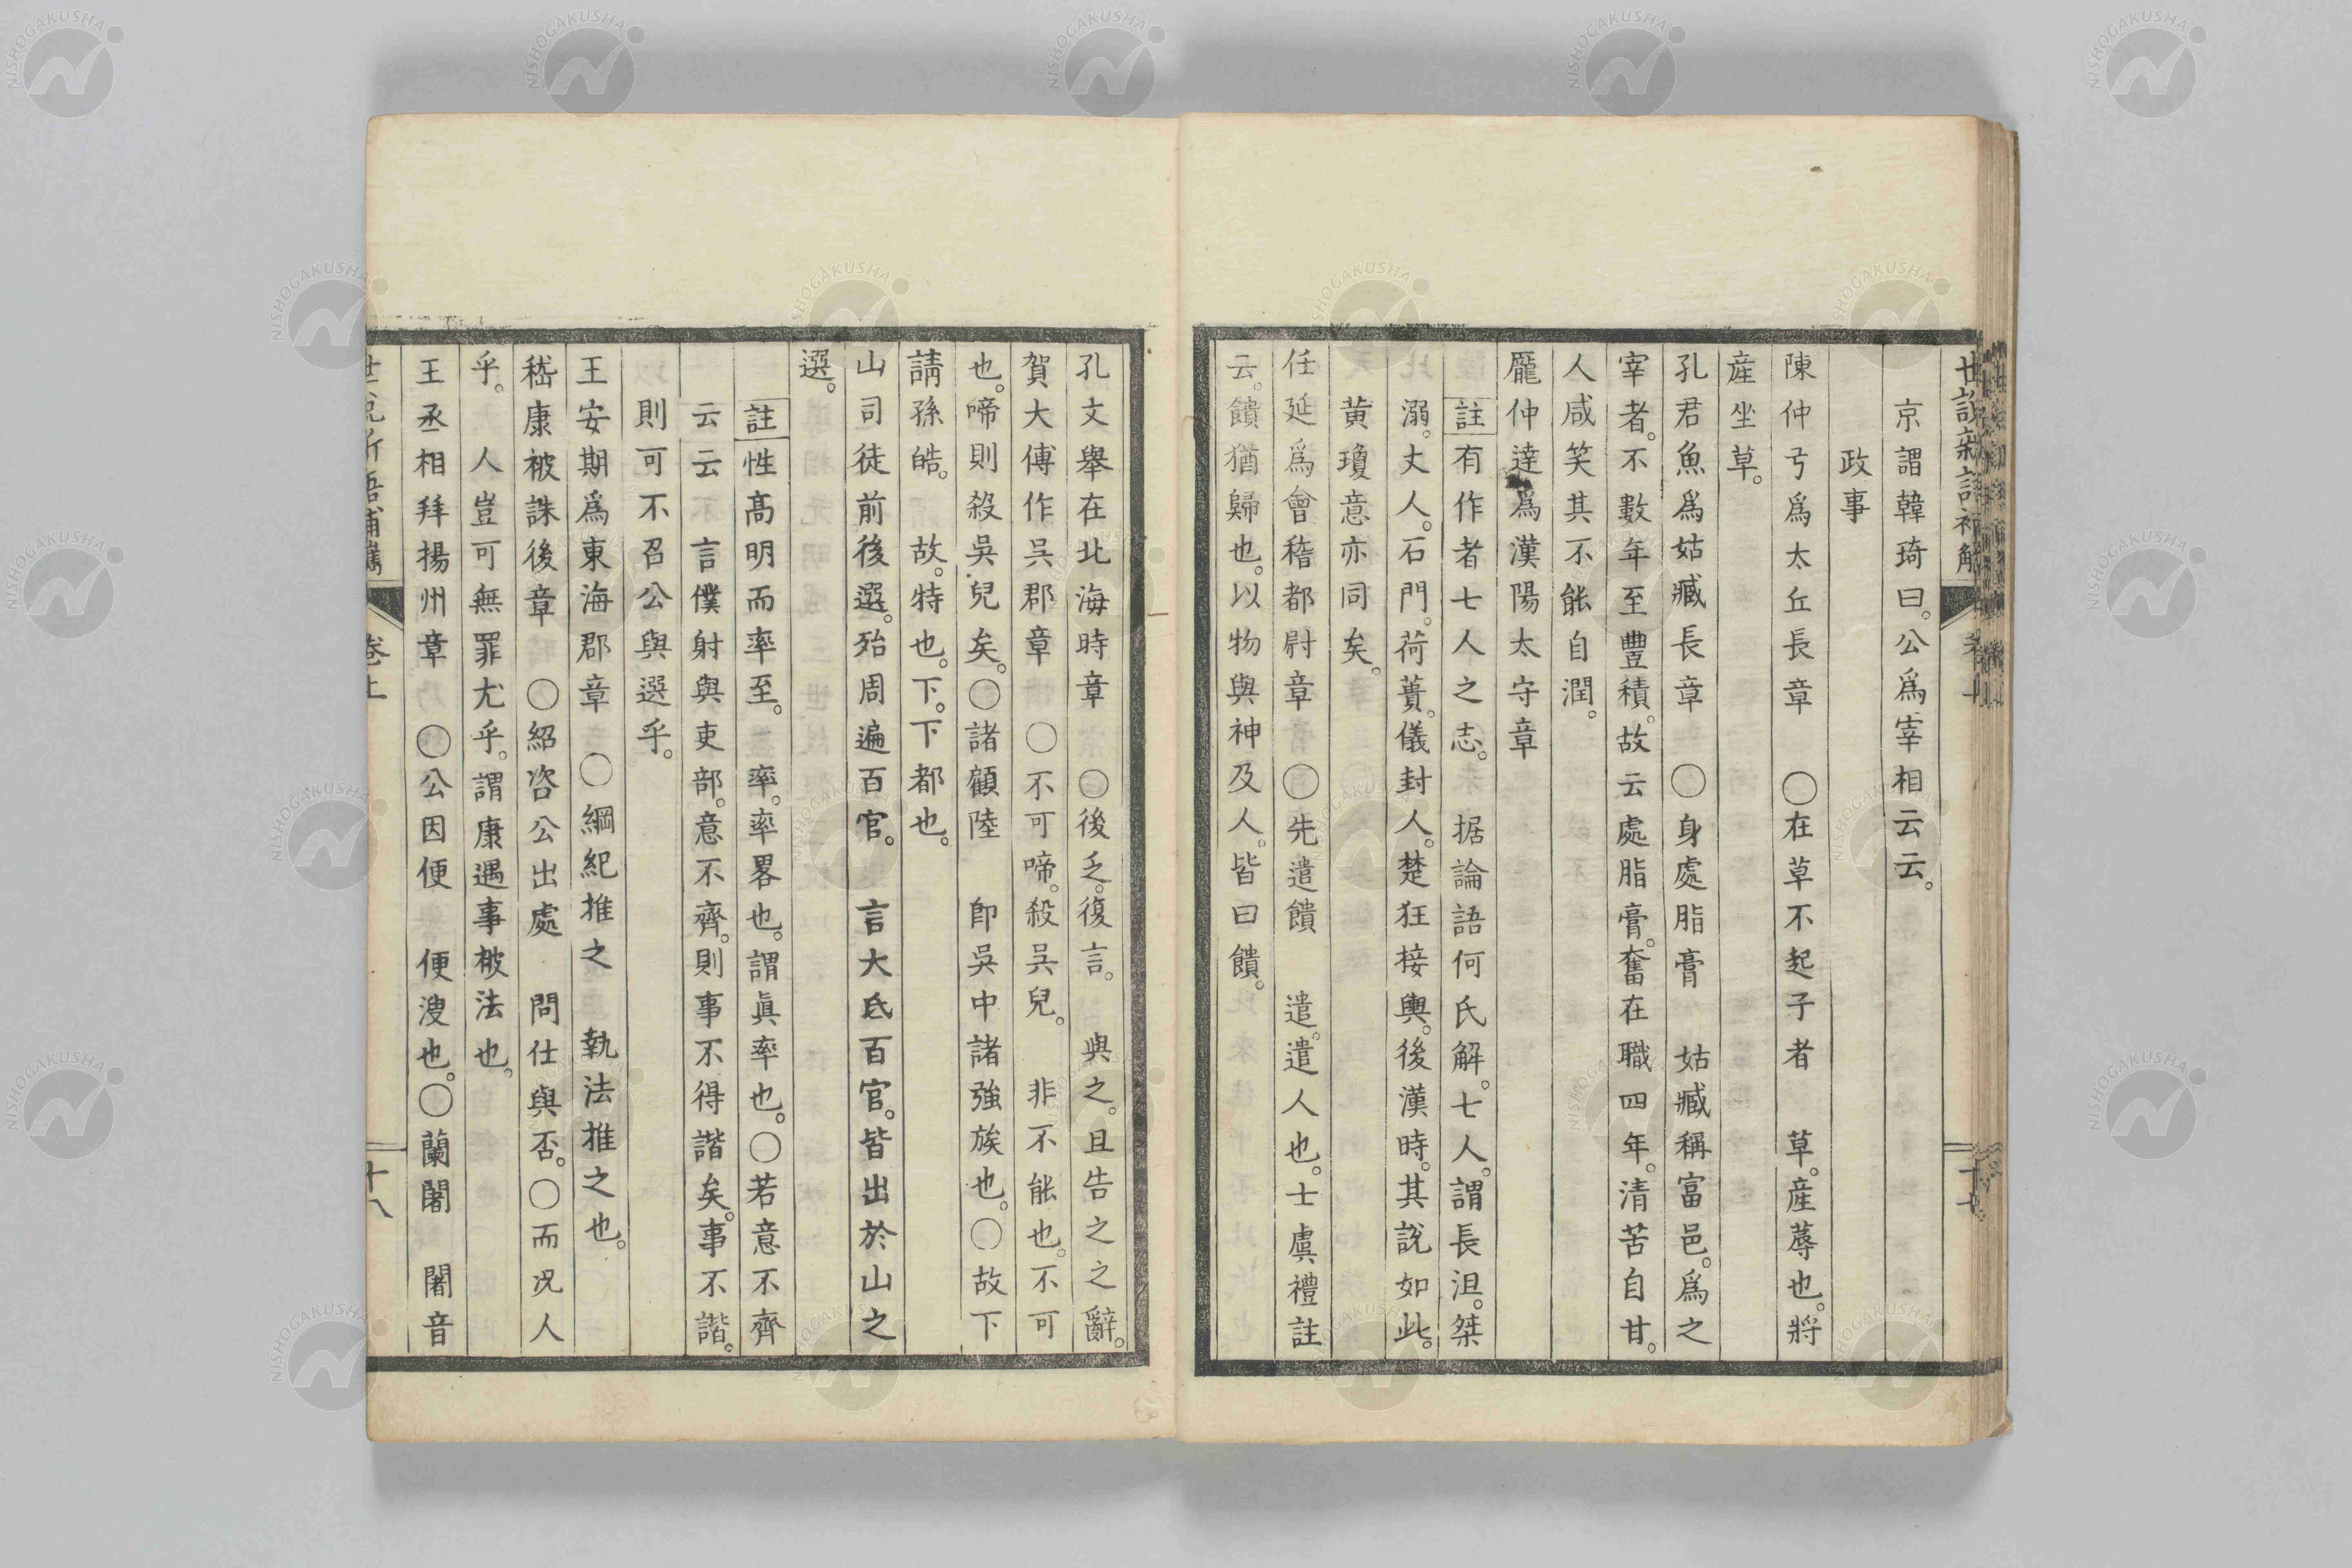 京謂韓琦曰。公爲宰相云云。
政事
陳仲弓爲太丘長章　○在草不起子者　草。産蓐也。將
産坐草。
孔君魚爲姑臧長章　○身處脂膏　姑臧稱富邑。爲之
宰者。不數年至豐積。故云處脂膏。奮在職四年。清苦自甘。
人咸笑其不能自潤。
龐仲達爲漢陽太守章
註有作者七人之志。　据論語何氏解。七人。謂長沮。桀
溺。丈人。石門。荷蕢。儀封人。楚狂接輿。後漢時。其說如此。
黃瓊意亦同矣。
任延爲會稽都尉章　○先遣饋　遣。遣人也。士虞禮註
云。饋猶歸也。以物與神及人。皆曰饋。
十七
孔文舉在北海時章　○後乏。復言。　與之。且告之之辭。
賀大傅作吳郡章　○不可啼。殺吳兒。　非不能也。不可
也。啼則殺吳兒矣。○諸顧陸　卽吳中諸強族也。○故下
請孫皓。　故。特也。下。下都也。
山司徒前後選。殆周遍百官。　言大氐百官。皆出於山之
選。
註性高明而率至。　率。率畧也。謂眞率也。○若意不齊
云云　言僕射與吏部。意不齊。則事不得諧矣。事不諧。
則可不召公與選乎。
王安期爲東海郡章　○綱紀推之　執法推之也。
嵇康被誅後章　○紹咨公出處　問仕與否。○而況人
乎。　人豈可無罪尤乎。謂康遇事被法也。
王丞相拜揚州章　○公因便　便溲也。○蘭闍　闍音
卷上
十八